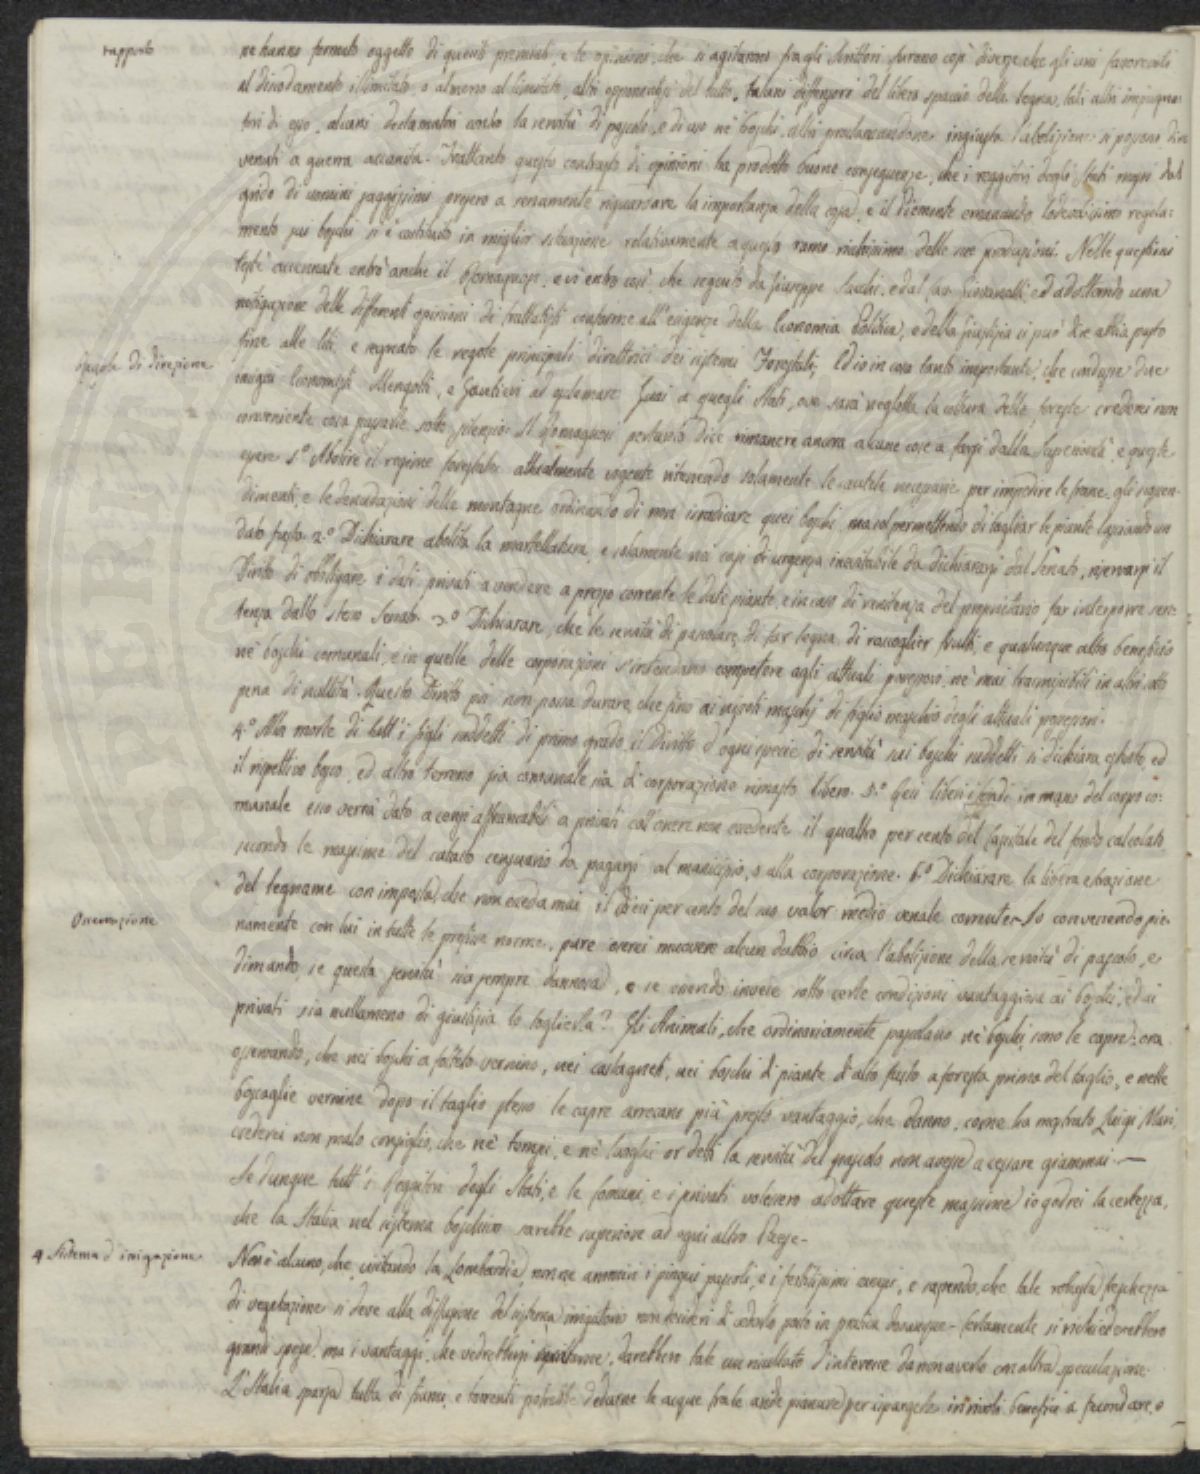 rapporto
ne hanno formato oggetto di questi premiati, e le opinioni, che si agitarono fra gli Scrittori furono così diverse che gli uni favorevoli
al disodamento illimitato, o almeno al limitato, altri opponendosi del tutto, taluni difensori del libero spaccio della legna, tali altri impugna-
tori di esso, alcuni declamatori contro la servitù di pascolo, e di uso ne' boschi, altri proclamandone ingiusta l'abolizione: si possono dire
venuti a guerra accanita. Frattanto questo contrasto di opinioni ha prodotto buone conseguenze, che i reggitori degli Stati mossi dal
grido di uomini saggissimi presero a seriamente riguardare la importanza della cosa, e il Piemonte emanando lodevolissimo regola-
mento sui boschi si è costituito in miglior situazione relativamente a questo ramo ricchissimo delle sue produzioni. Nelle questioni
testè accennate entrò anche il Romagnosi, e vi entrò così che seguito da Giuseppe Sacchi, e dal Giovanelli, ed adottando una
mitigazione delle differenti opinioni di trattatisti conforme all'esigenze della Economia Politica, e della giustizia si può dire abbia posto
fine alle liti, e segnato le regole principali direttrici dei sistemi Forestali. Ed io in cosa tanto importante, che condusse due
Regole di direzione
insigni Economisti Mengotti, e Gautieri ad esclamare Guai a quegli Stati, ove sarà negletta la coltura delle foreste crederei non
conveniente cosa passarle sotto silenzio. Il Romagnosi pertanto dice rimanere ancora alcune cose a farsi dalla Superiorità e queste
essere 1.° Abolire il regime forestale attualmente vegente ritenendo solamente le cautele necessarie per impedire le frane, gli scoscen-
dimenti, e le denudazioni delle montagne ordinando di non isradicare quei boschi, ma sol permettendo di tagliar le piante lasciando un
dato fusto. 2.° Dichiarare abolita la martellatura, e solamente nei casi di urgenza inevitabile da dichiararsi dal Senato, riservarsi il
Diritto di obbligare i dati privati a vendere a prezzo corrente le date piante, e in caso di renitenza del proprietario far interporre sen-
tenza dallo stesso Senato. 3.° Dichiarare, che le servitù di pascolare, di far legna, di raccoglier frutti, e qualunque altro beneficio
ne' boschi comunali, e in quelle delle corporazioni s'intendano competere agli attuali possessori, nè mai trasmissibili in altri sotto
pena di nullità. Questo Diritto poi non possa durare, che fino ai nipoti maschi di figlio maschio degli attuali possessori.
4.° Alla morte di tutt'i figli suddetti di primo grado il Diritto d'ogni specie di servitù sui boschi suddetti si dichiara estinto, ed
il rispettivo bosco, ed altro terreno sia comunale sia di corporazione rimasto libero. 5.° Resi liberi i fondi in mano del corpo co-
munale esso verrà dato a censi affrancabili a privati coll'onere non eccedente il quattro per cento del Capitale del fondo calcolato
secondo le massime del catasto censuario da pagarsi al municipio, o alla corporazione. 6.° Dichiarare la libera estrazione
del legname con imposta, che non ecceda mai il dieci per cento del suo valor medio venale corrente. Io convenendo pie-
Osservazione
namente con lui in tutte le prefisse norme, pure oserei muovere alcun dubbio circa l'abolizione della servitù di pascolo, e
dimando, se questa servitù sia sempre dannosa, e se essendo invece sotto certe condizioni vantaggiosa ai boschi, ed ai
privati sia nullameno di giustizia lo toglierla? Gli Animali, che ordinariamente pascolano ne' boschi, sono le capre, ora
osservando, che nei boschi a folto vernino, nei castagneti, nei boschi di piante d'alto fusto a foresta prima del taglio, e nelle
boscaglie vernine dopo il taglio stesso le capre arrecano più presto vantaggio, che danno, come ha mostrato Luigi Mari,
crederei non malo consiglio, che ne' tempi, e ne' luoghi or detti la servitù del pascolo non avesse a cessare giammai. —
Se dunque tutt'i Reggitori degli Stati, e le Comuni, e i privati volessero adottare queste massime, io godrei la certezza,
che la Italia nel sistema boschivo sarebbe superiore ad ogni altro Paese.
4 Sistema d'irrigazione
Non v'è alcuno, che visitando la Lombardia, non ne ammiri i pingui pascoli, e i fertilissimi campi, e sapendo, che tale robusta freschezza
di vegetazione si deve alla diffusione del sistema irrigatorio non desideri di vederlo posto in pratica dovunque. Certamente si richiederebbero
grandi spese, ma i vantaggi, che vedrebbersi darebbero tale un risultato d'interesse da non averlo con altra speculazione.
L'Italia sparsa tutta di fiumi, e torrenti potrebbe dedurne le acque fra le aride pianure per ispargerle in rivoli benefici a fecondare, o